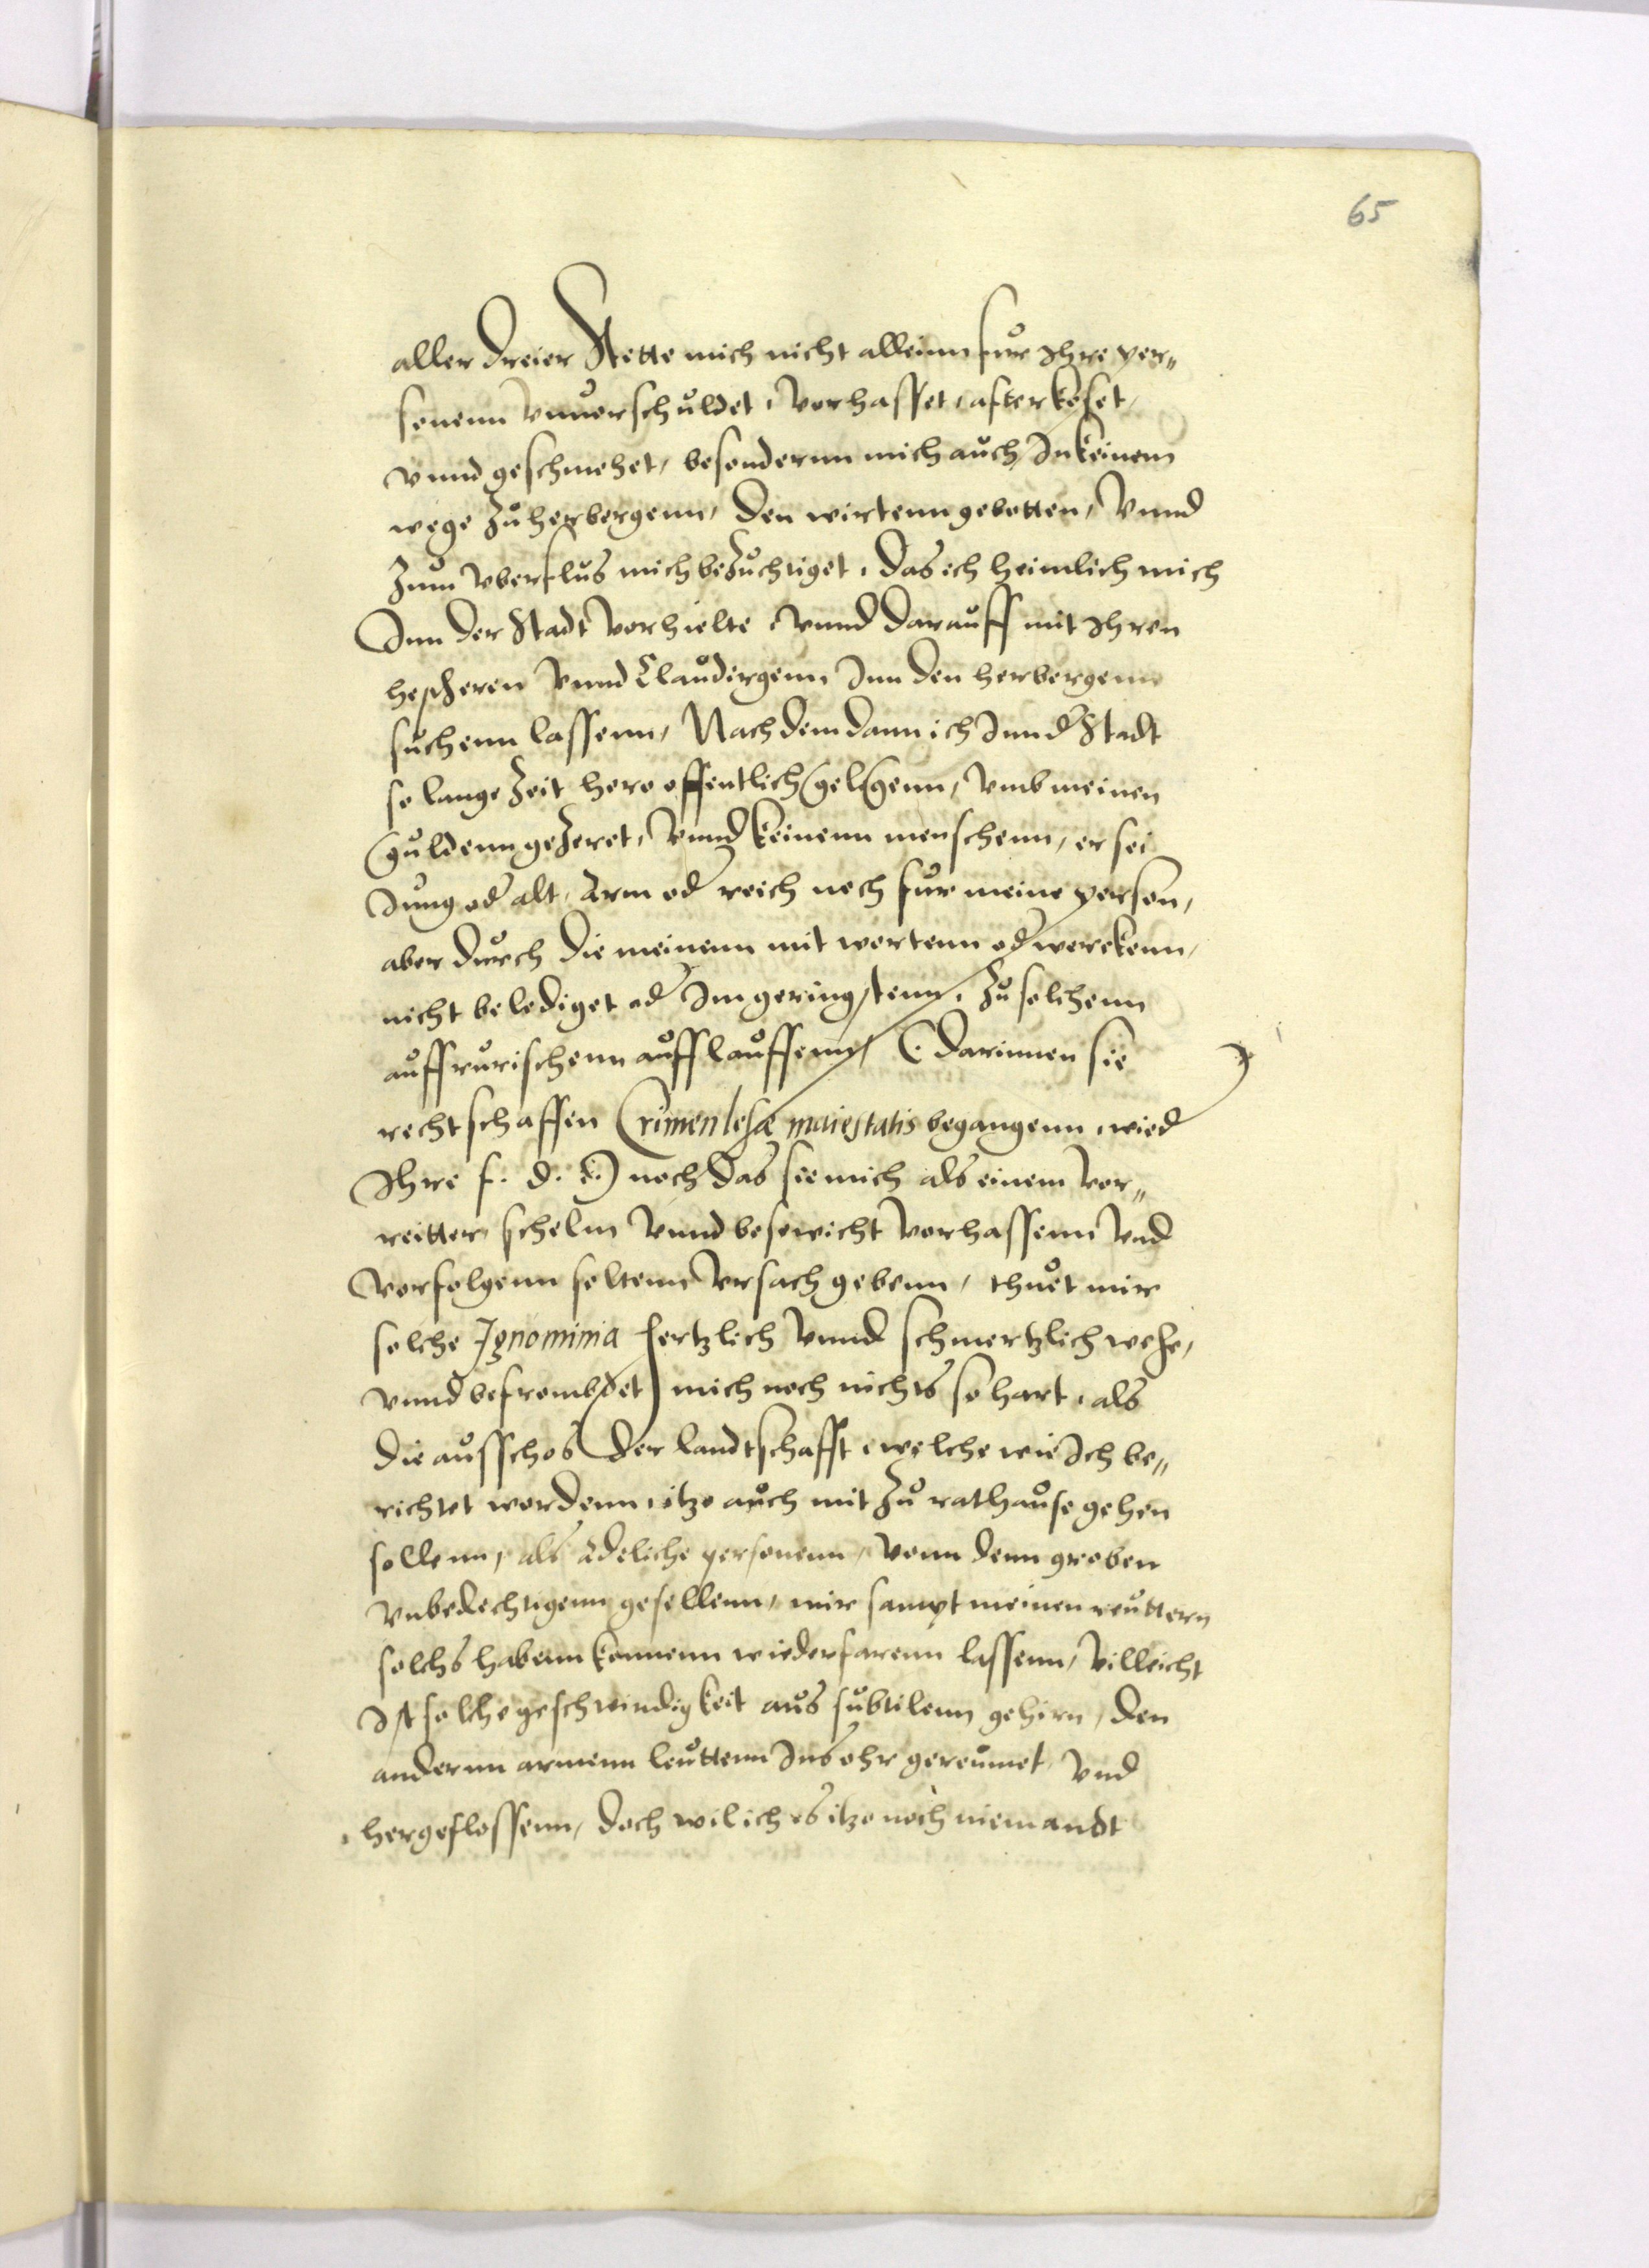 65
aller dreier Stette mich nicht alleinn fur Ihre per„
sonenn vnuorschuldet, vorhasset, afterkoset,
vnnd geschmehet, besonderun mich auch In keinem
wege zu herbergenn, den wirtenn gebotten, vnnd
zum vberflus mich bezuchtiget, das ich heimlich mich
Inn der Stadt vorhielte, vnnd darauff mit Ihren
vnnd Inn den herbergenn
suchenn lassenn, Nach dem dann ich Inn der Stadt
so lange zeit hero offentlich gelegenn, vmb meinen
guldenn gezeret, vnnd keinenn menschenn, er sei
Jung od alt, Arm od reich noch fur meine person,
aber durch die meinenn mit wortenn od werckenn,
nicht belediget od Im geringstenn, zu solchenn
auffrurischenn aufflauffenn, (darinnen sie
rechtschaffen Crimen lesæ maiestatis begangenn, wied
Ihre f. d. e.) noch das sie mich als einem vor„
reitter, schelm vnnd besewicht vorhassenn vnd
vorfolgenn soltenn vrsach gebenn, thuet mir
solche Ignominia hertzlich vnnd schmertzlich wehe,
vnnd befrombdet mich noch nichts so hart, als
die ausschos der landtschafft, welche wie Ich be„
richtet wordenn, itzo auch mit zu rathause gehen
sollenn, als Adeliche personenn, vonn denn groben
vnbedechtigenn gesellenn, mir sampt meinen reuttern
solchs habenn konnenn wiederfarenn lassenn, villeicht
Ist solche geschwindigkeit aus subtilenn gehirn, den
anderun armenn leuttenn Ins ohr gereumet, vnd
hergeflossenn, doch wil ich es itzo noch niemandt